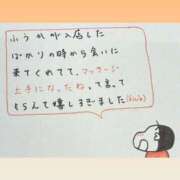 ふうかが入店した
ばかりの時から会いに
来てくれてて、マッサージ
上手になったね って言って
もらえて嬉しすぎました